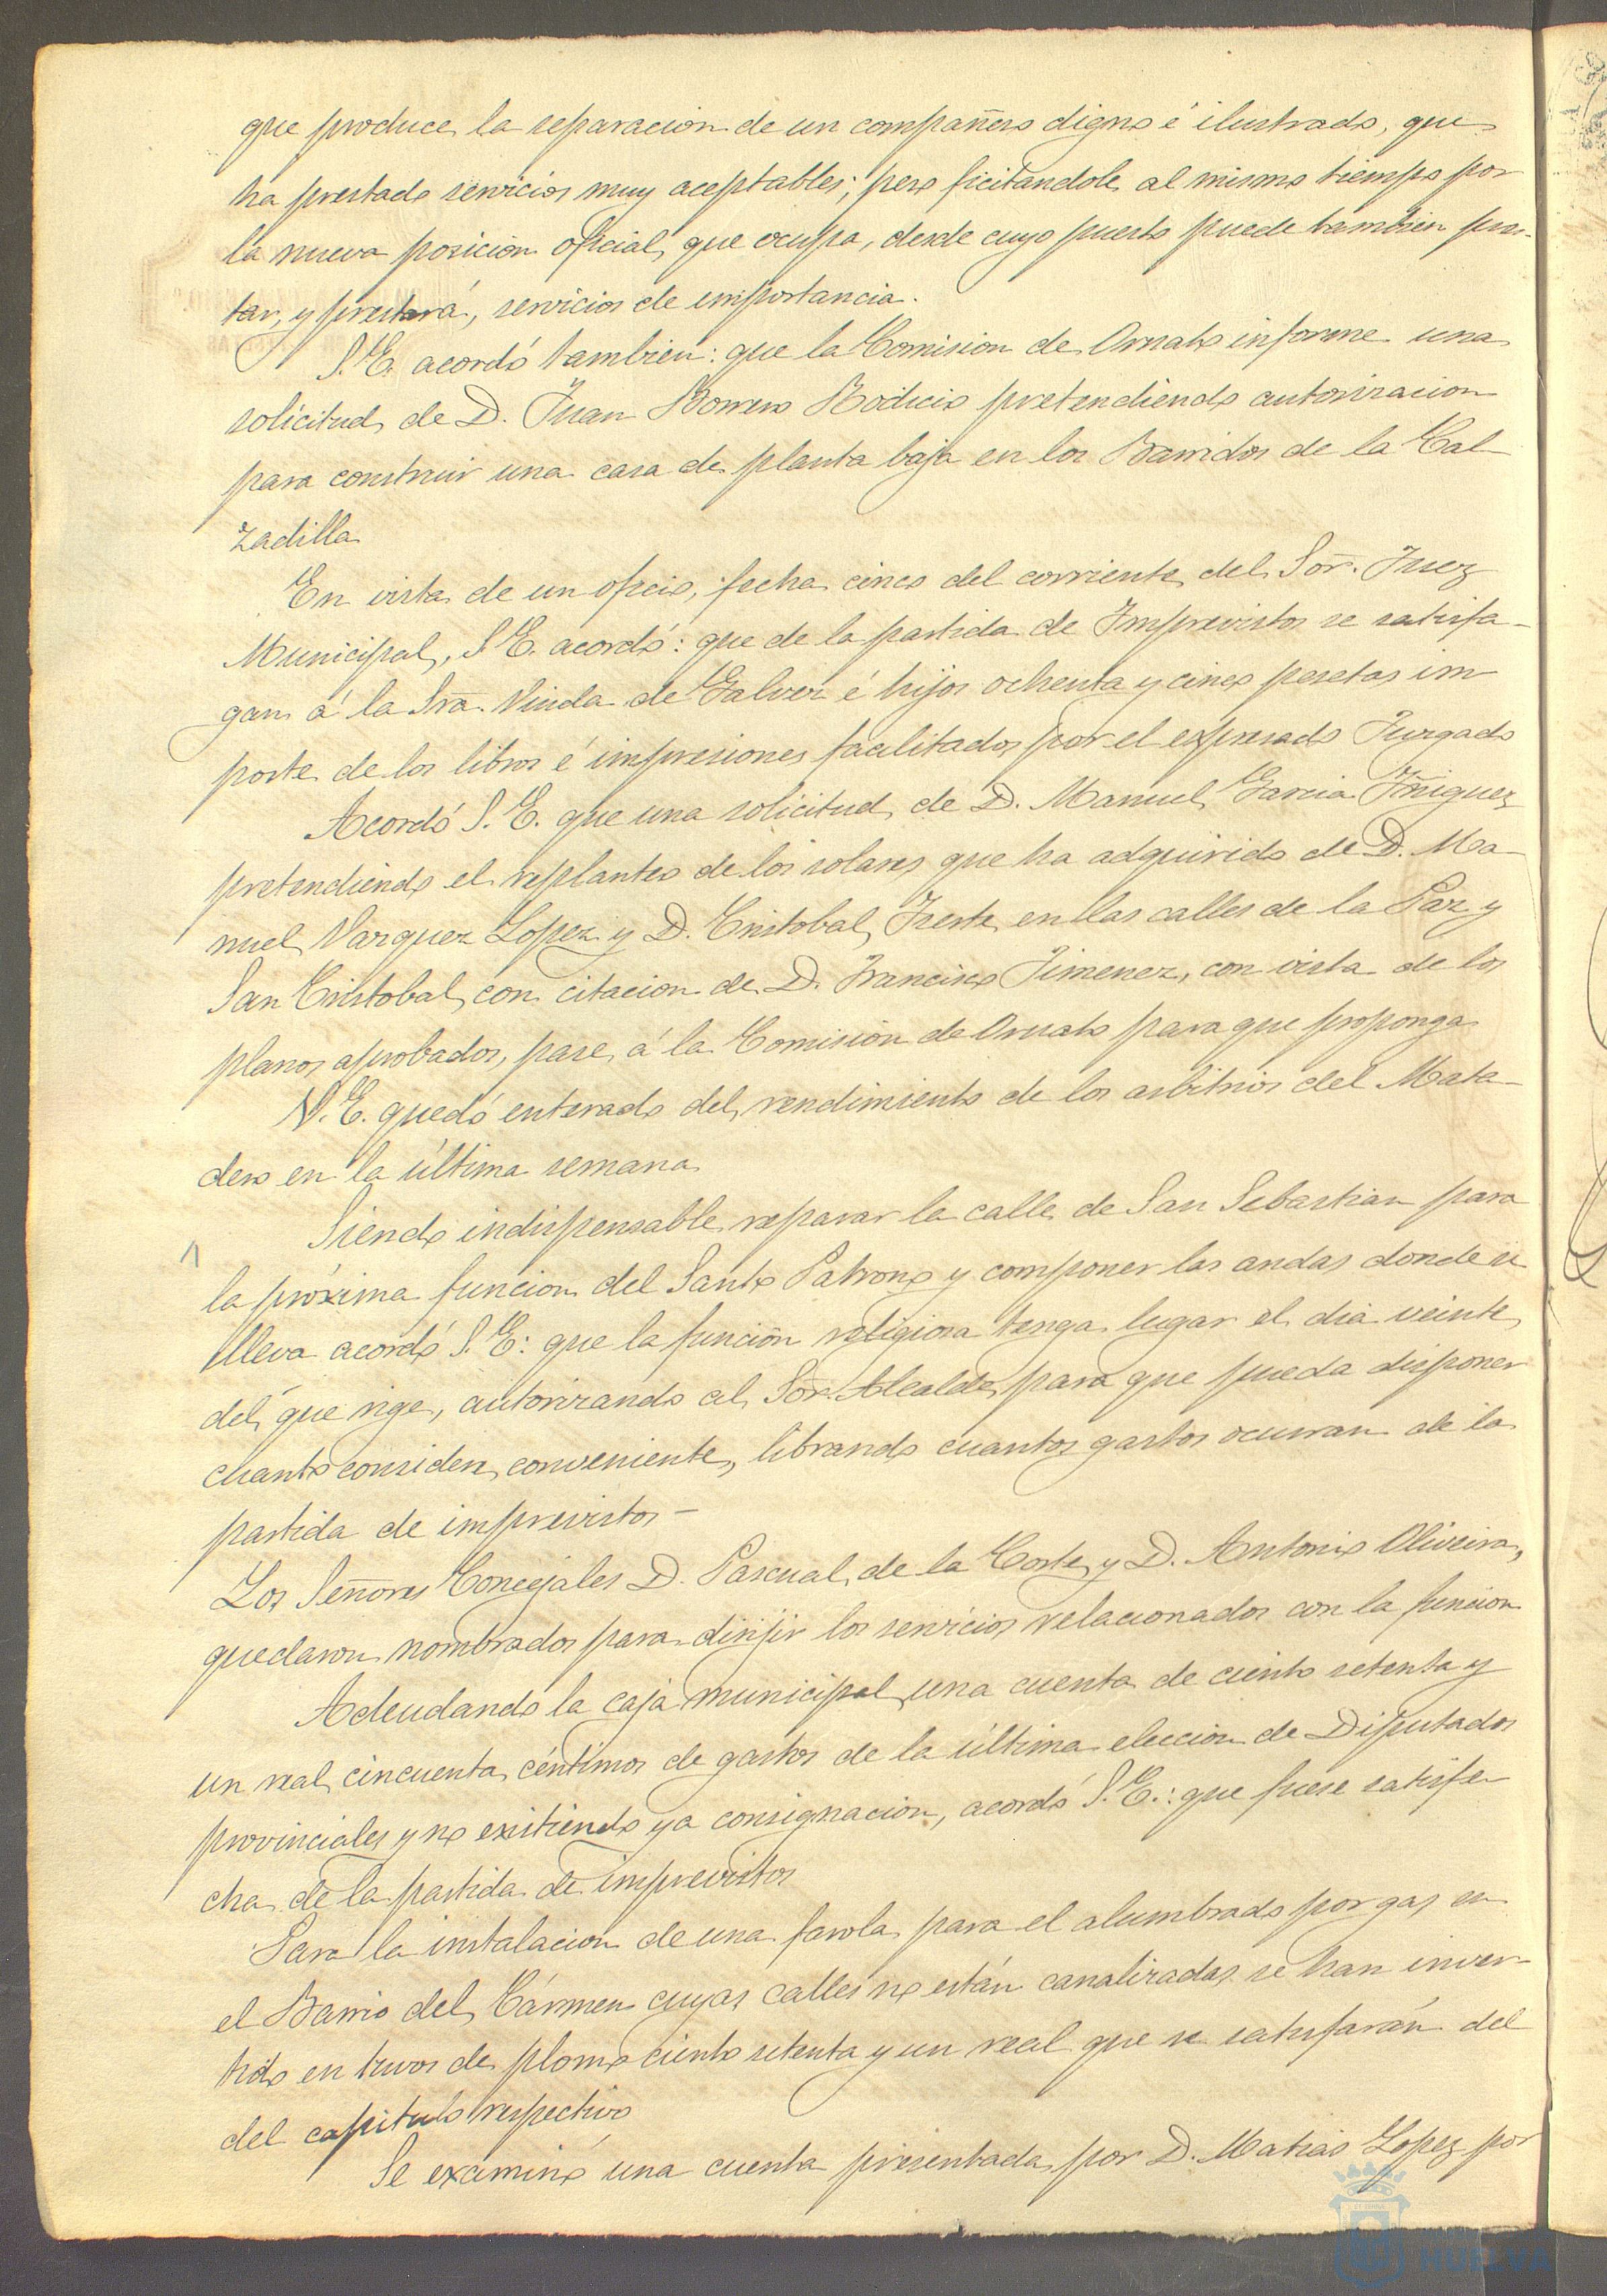 que produce la separacion de un compañero digno é ilustrado, que
ha prestado servicios muy aceptables; pero ficitandole al mismo tiempo por
la nueva posicion oficial que ocupa, desde cuyo puesto puede tambien pres-
tar, y prestará, servicios de importancia.
S. E. acordó tambien: que la Comision de Ornato informe una
solicitud de D. Juan Borrero Rodicio pretendiendo autorizacion
para construir una casa de planta baja en los Barridos de la Cal
zadilla
En vista de un oficio, fecha cinco del corriente del Sor. Juez
Municipal, S. E. acordó: que de la partida de Imprevistos se satisfa-
gan á la Sra. Viuda de Galvez é hijos ochenta y cinco pesetas im
porte de los libros é impresiones facilitados por el expresado Juzgado
Acordó S. E. que una solicitud de D. Manuel Garcia Iñiguez
pretendiendo el replanteo de los solares que ha adquirido de D. Ma-
nuel Vazquez Lopez y D. Cristobal Yeste en las calles de la Paz y
San Cristobal con citacion de D. Francisco Jimenez, con vista de los
planos aprobados, pase á la Comision de Ornato para que proponga
S. E. quedó enterado del rendimiento de los arbitrios del Mata-
dero en la última semana
Siendo indispensable reparar la calle de San Sebastian para
la próxima funcion del Santo Patrono y componer las andas donde se
lleva acordó S. E: que la función religiosa tenga lugar el dia veinte
del que rige, autorizando al Sor. Alcalde para que pueda disponer
cuanto considere conveniente, librando cuantos gastos ocurran de la
partida de imprevistos -
Los Señores Concejales D. Pascual de la Corte y D. Antonio Oliveira,
quedaron nombrados para dirijir los servicios relacionados con la funcion
Adeudando la caja municipal una cuenta de ciento setenta y
un real cincuenta céntimos de gastos de la última eleccion de Diputados
provinciales y no existiendo ya consignacion, acordó S. E.: que fuese satisfe
cha de la partida de imprevistos
Para la instalacion de una farola para el alumbrado por gas en
el Barrio del Cármen cuyas calles no están canalizadas se han inver-
tido en tuvos de plomo ciento setenta y un real que se satisfarán del
del capitulo respectivo
Se examinó una cuenta presentada por D. Matias Lopez por
HUELVA